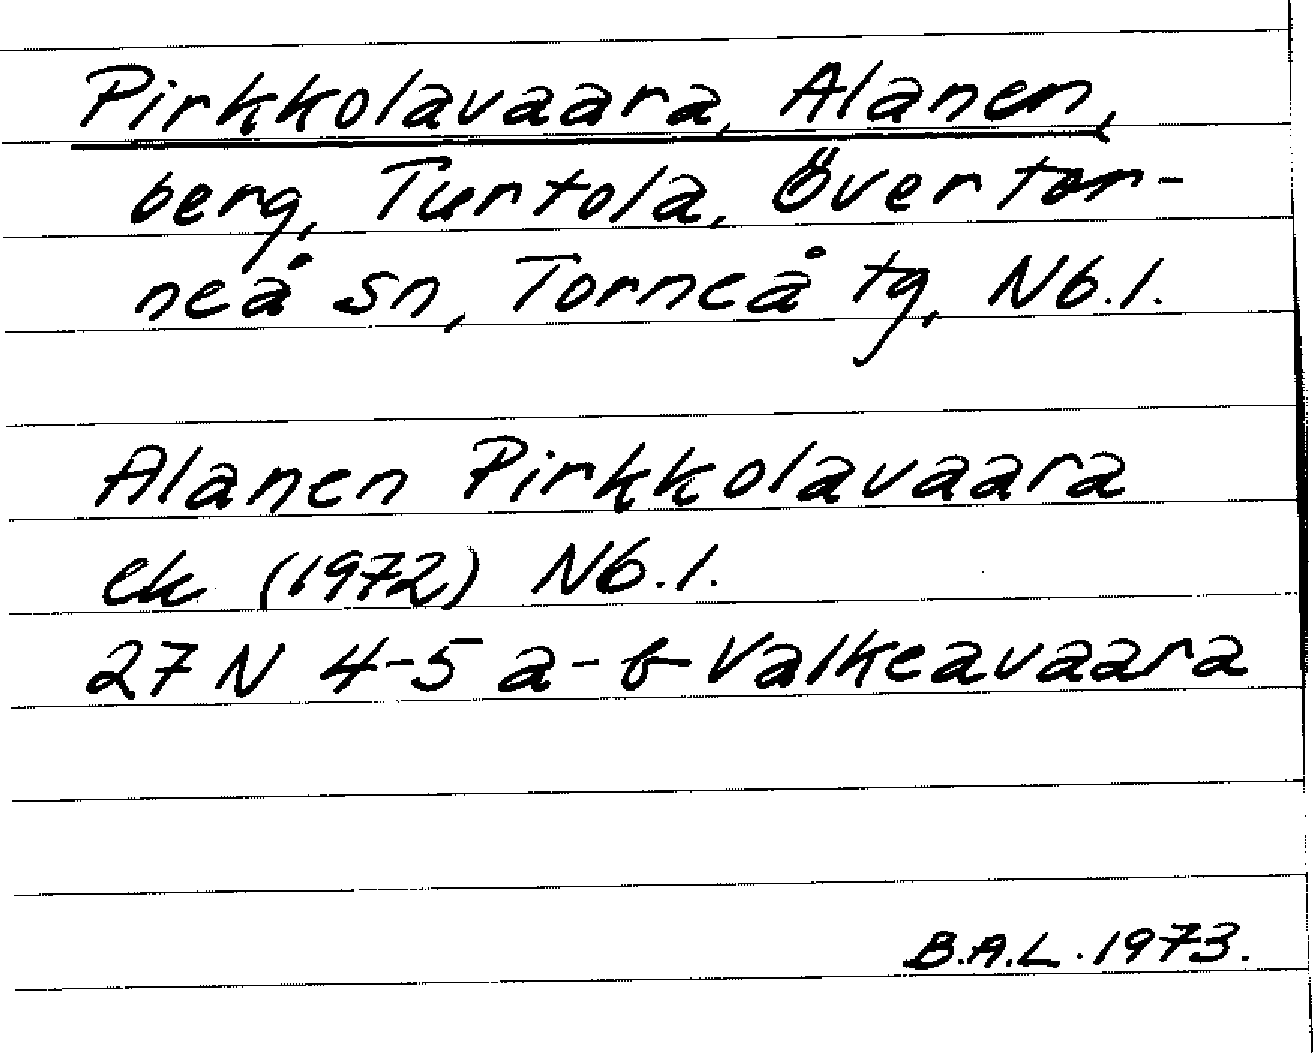 Pirkkolavaara, Alanen,
berg, Turtola, Övertor-
neå sn, Torneå tg, Nb.l.
Alanen Pirkkolavaara
ek (1972) Nb.l.
27 N 4-5 a-b Valkeavaara
B.A.L. 1973.